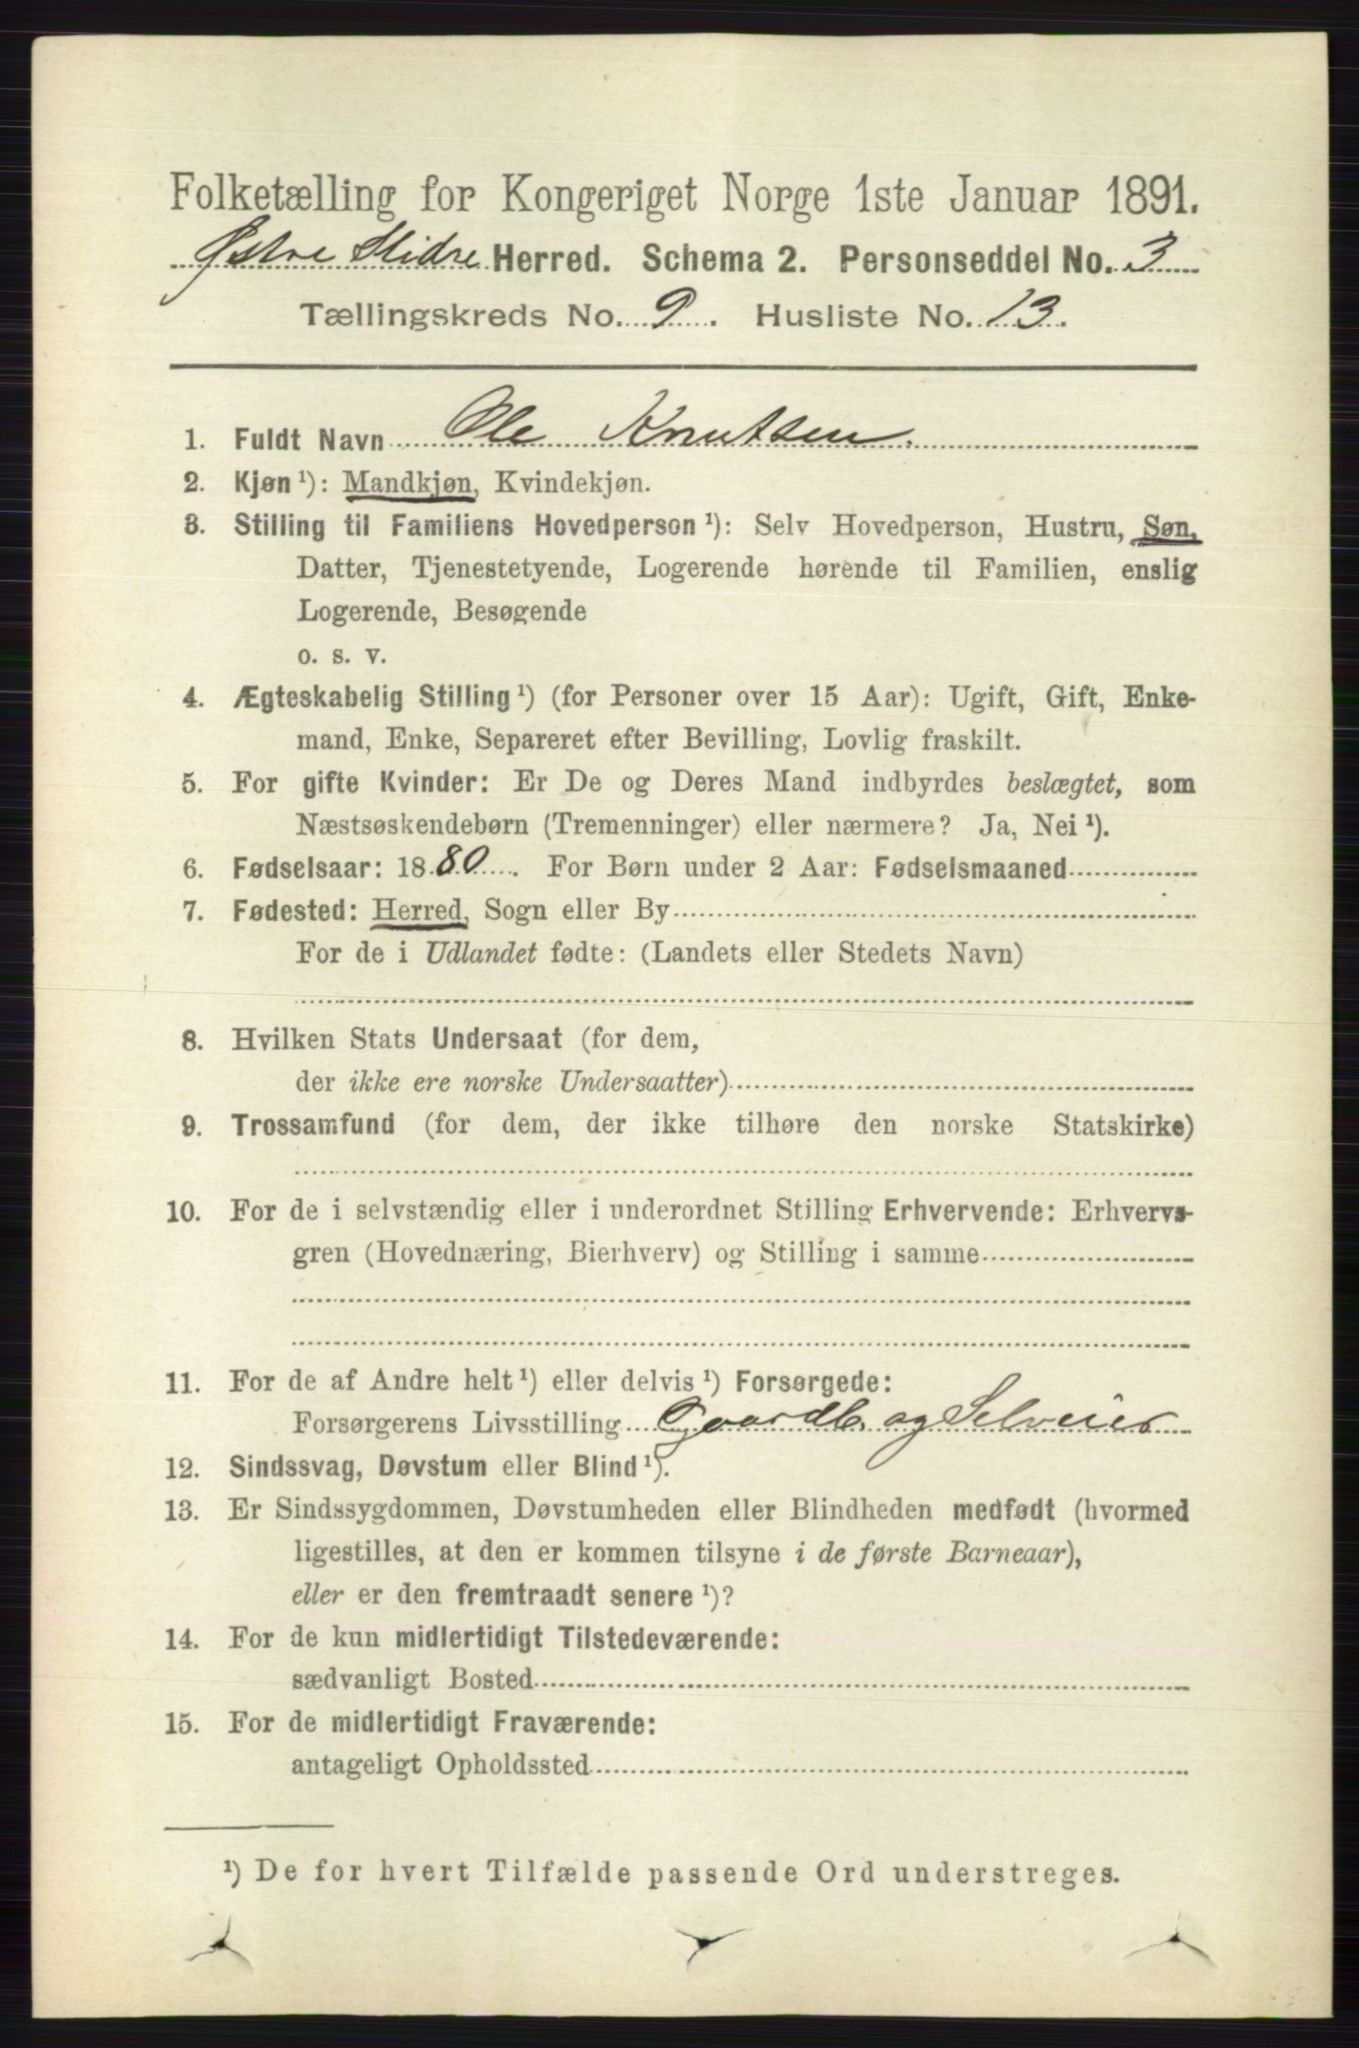 Folketælling for Kongeriget Norge 1ste Januar 1891.
Østre Slidre Herred. Schema 2. Personseddel No. 3
Tællingskreds No. 9. Husliste No. 13.
1. Fuldt Navn Ole Knutsen.
2. Kjøn ¹): Mandkjøn, Kvindekjøn.
3. Stilling til Familiens Hovedperson ¹): Selv Hovedperson, Hustru, Søn,
Datter, Tjenestetyende, Logerende hørende til Familien, enslig
Logerende, Besøgende
o. s. v.
4. Ægteskabelig Stilling ¹) (for Personer over 15 Aar): Ugift, Gift, Enke-
mand, Enke, Separeret efter Bevilling, Lovlig fraskilt.
5. For gifte Kvinder: Er De og Deres Mand indbyrdes beslægtet, som
Næstsøskendebørn (Tremenninger) eller nærmere? Ja, Nei ¹).
6. Fødselsaar: 1880. For Børn under 2 Aar: Fødselsmaaned
7. Fødested: Herred, Sogn eller By
For de i Udlandet fødte: (Landets eller Stedets Navn)
8. Hvilken Stats Undersaat (for dem,
der ikke ere norske Undersaatter)
9. Trossamfund (for dem, der ikke tilhøre den norske Statskirke)
10. For de i selvstændig eller i underordnet Stilling Erhvervende: Erhvervs-
gren (Hovednæring, Bierhverv) og Stilling i samme
11. For de af Andre helt ¹) eller delvis ¹) Forsørgede:
Forsørgerens Livsstilling Gaardb. og Selveier
12. Sindssvag, Døvstum eller Blind ¹).
13. Er Sindssygdommen, Døvstumheden eller Blindheden medfødt (hvormed
ligestilles, at den er kommen tilsyne i de første Barneaar),
eller er den fremtraadt senere ¹)?
14. For de kun midlertidigt Tilstedeværende:
sædvanligt Bosted
15. For de midlertidigt Fraværende:
antageligt Opholdssted
¹) De for hvert Tilfælde passende Ord understreges.